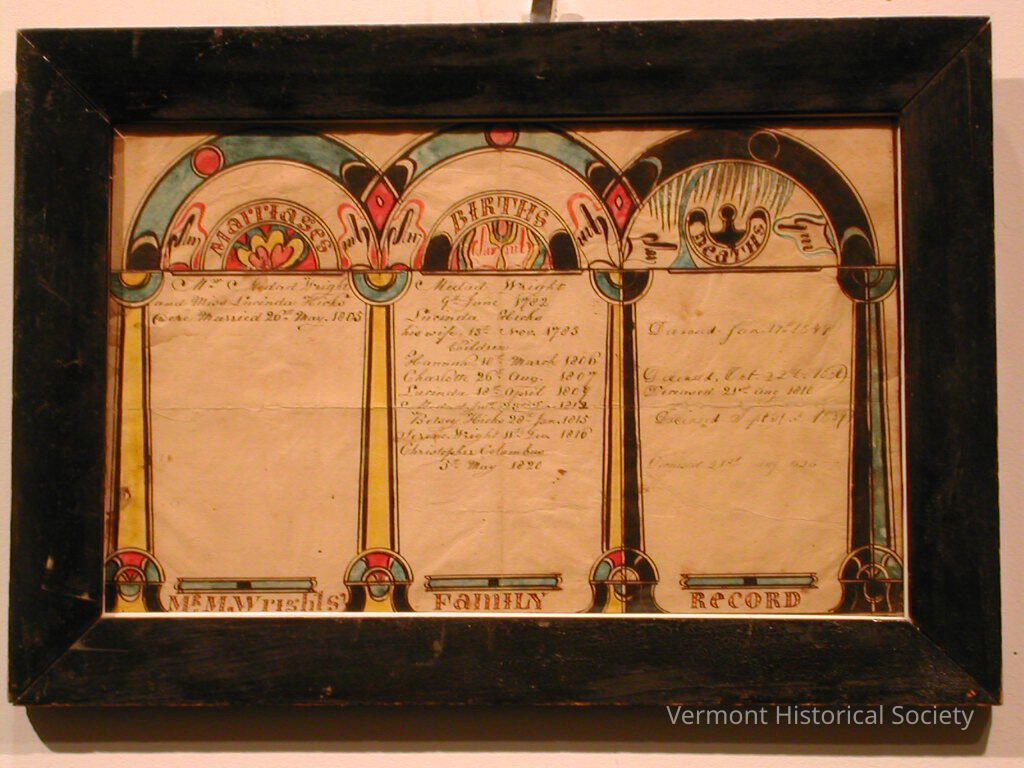 Marriages
Mr. Medad Wright
and Miss Lucinda Hicks
were Married 20th May. 1805
BIRTHS
Medad Wright
9th June 1782
Lucinda Hicks
his wife 13th Nov. 1783
Children
Hannah 10th March 1806
Charlotte 26th Aug. 1807
Lucinda 18th April
1812
Betsey Hicks 28th Jan. 1815
Wright 11th 1816
Christopher Columbus
5th May 1820
DEATHS
Deceased Oct. 22d
Deceased 21st Aug 1810
Deceased
Mr. M. Wrights'
FAMILY
RECORD
Vermont Historical Society